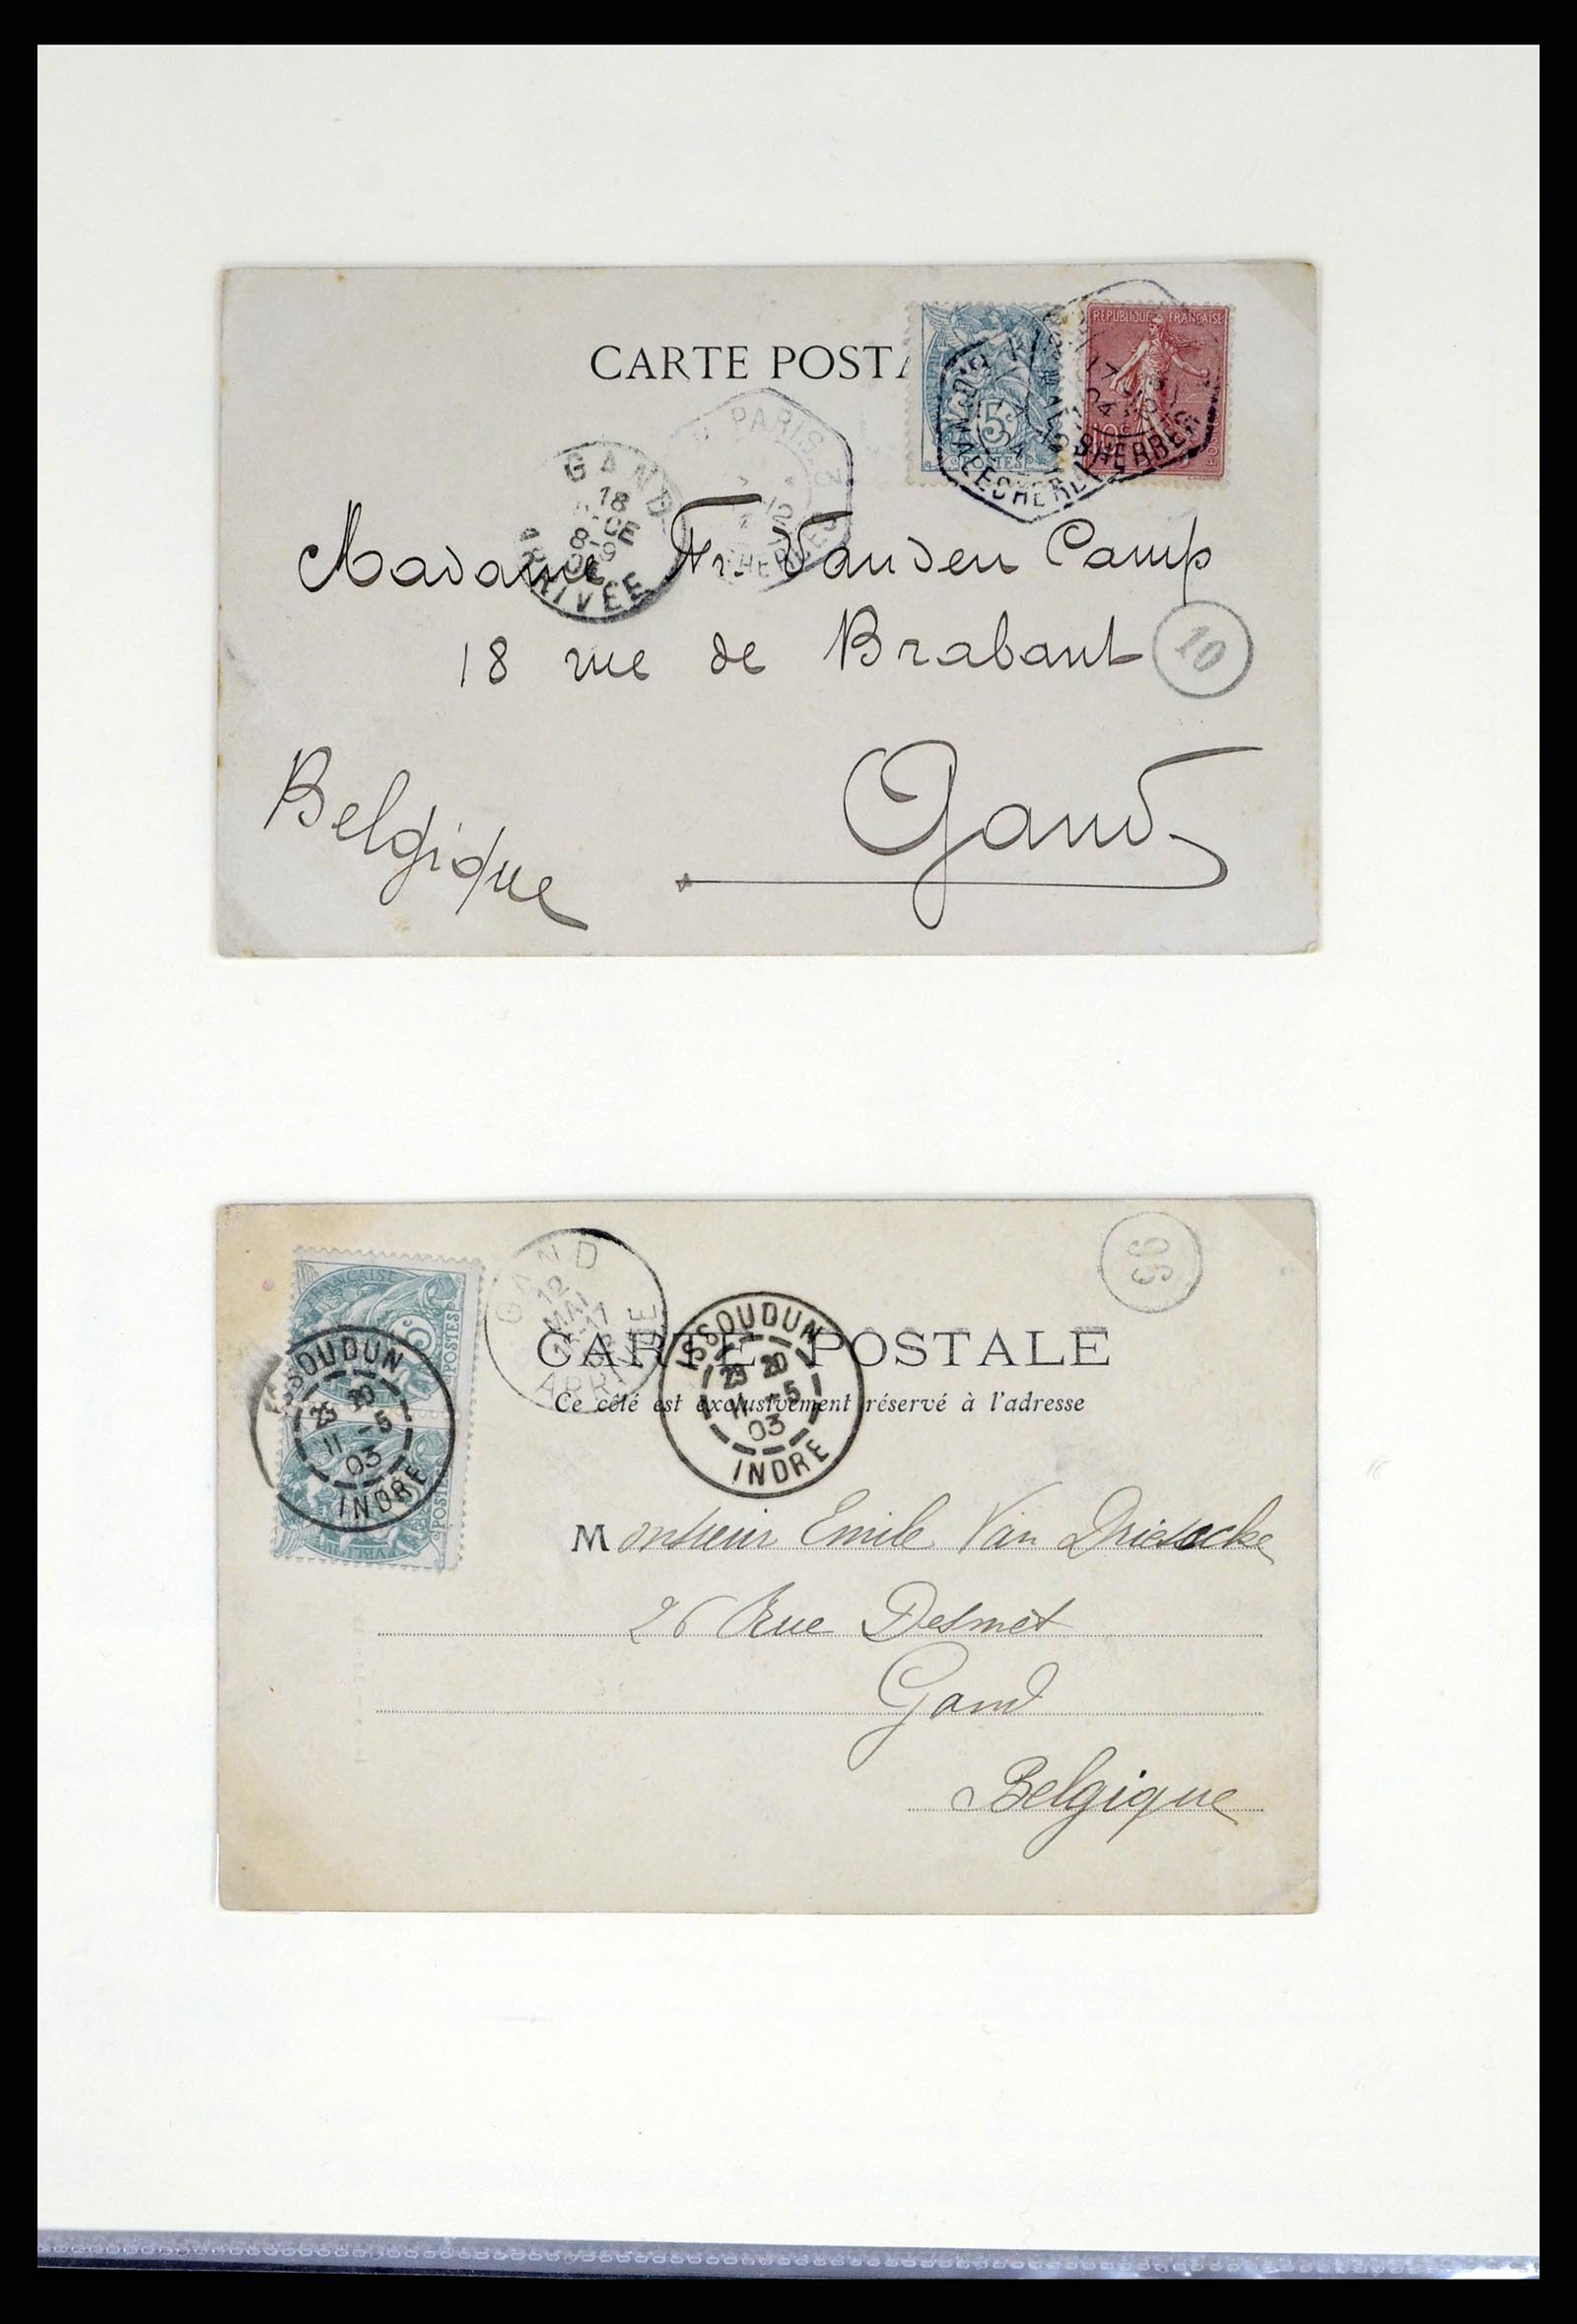 CARTE POSTA
RÉPUBLIQUE FRANÇAISE
5
POSTES
10
PARIS
GAND
18
8-9
ARRIVÉE
Madame Fr. Vanden Camp
18 rue de Brabant
10
Gand
Belgique
96
GAND
12
MAI
ARRIVÉE
ISSOUDUN
11 -5
03
INDRE
POSTES
ISSOUDUN
11 -5
03
INDRE
CARTE POSTALE
Ce côté est exclusivement réservé à l'adresse
Monsieur Emile Van
26 Rue Desmet
Gand
Belgique